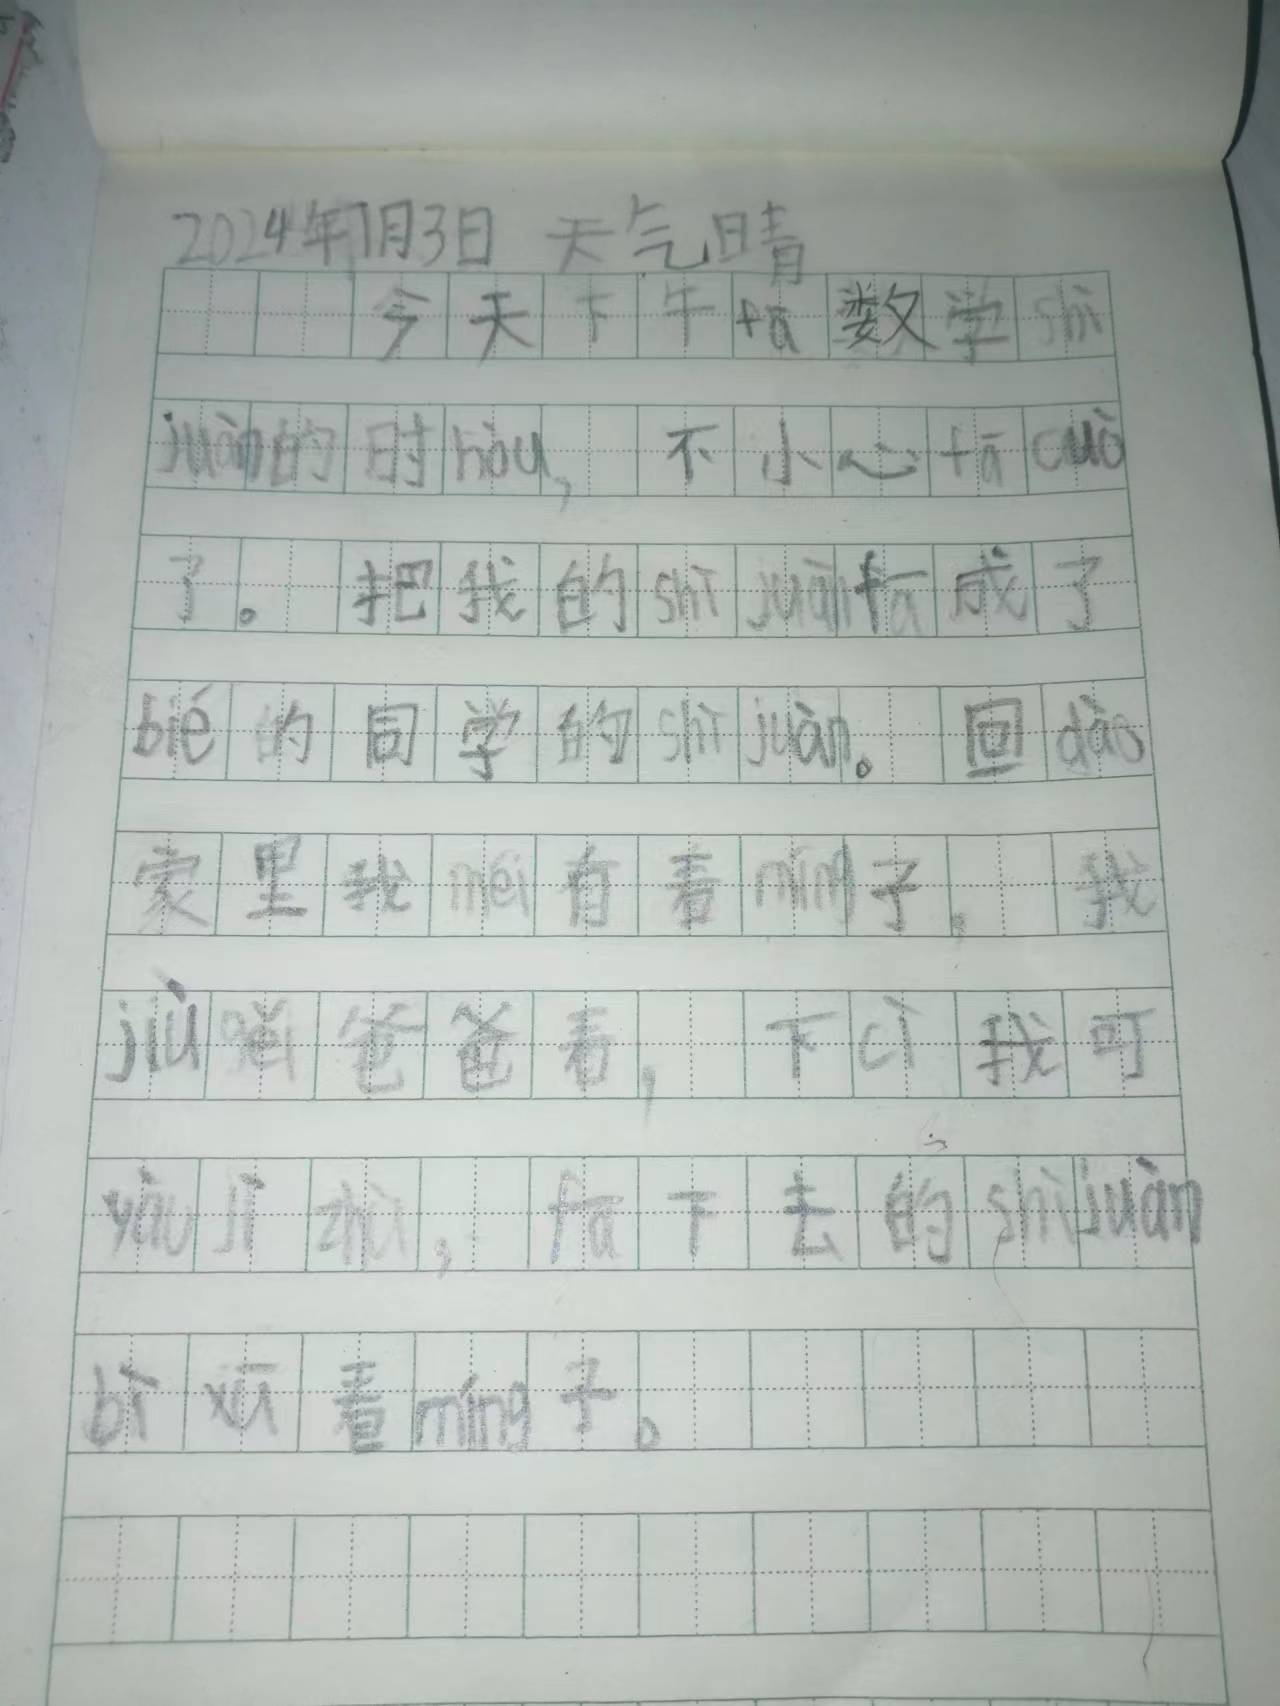 2024年1月3日 天气晴
今天下午fā数学shì
juàn的时hòu, 不小心fā cuò
了。把我的shì juàn fā成了
bié的同学的shì juàn。回dào
家里我méi有看míng子, 我
jiù gěi爸爸看, 下cì我可
yào jì zhù, fā下去的shì juàn
bì xū看míng子。